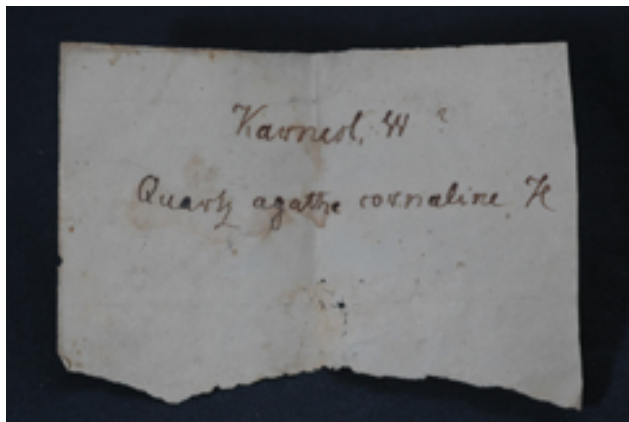 Karneol, W ?
Quartz agathe cornaline, H